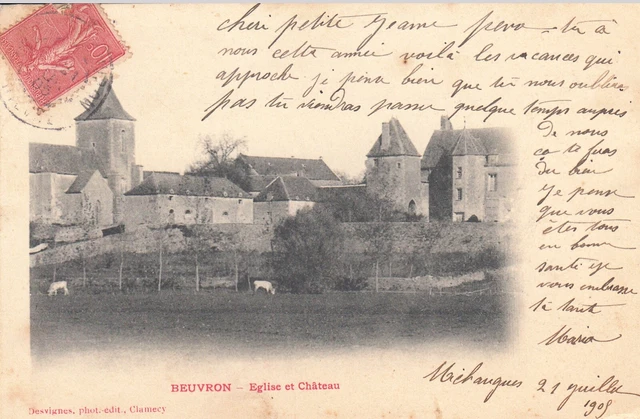 cheri petite Jeanne pense-tu à
nous cette année voilà les vacances qui
approche je pense bien que tu nous oubliera
pas tu viendras passer quelque temps auprès
de nous
ça te feras
du bien
Je pense
que vous
êtes tous
en bonne
santé je
vous embrasse
ta tante
Maria
21 juillet
190
BEUVRON – Eglise et Château
Desvignes, phot.-édit., Clamecy